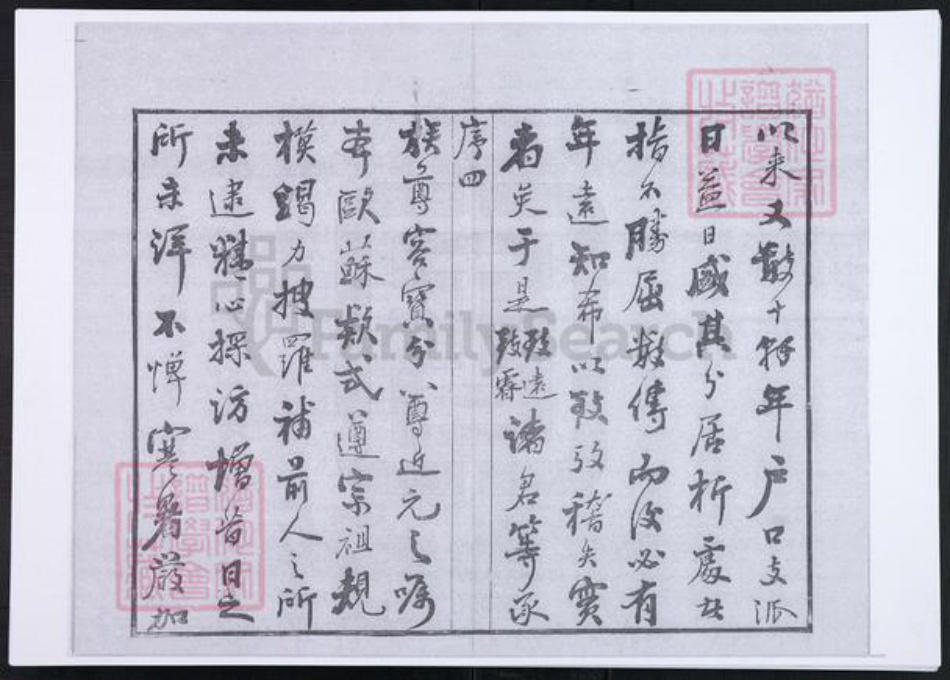 以来又數十餘年户口支派
日益日盛其分居析處者
指不勝屈数傳而後必有
年遠知希以致攷稽失實
者矣于是致遠致霖諸名等承
序四
族尊容寶兮尊近元之嘱
本歐蘇欵式遵宗祖規
模竭力搜羅補前人之所
未逮雅心探访增昔日之
所未詳不惮寒暑嚴加
FamilySearch